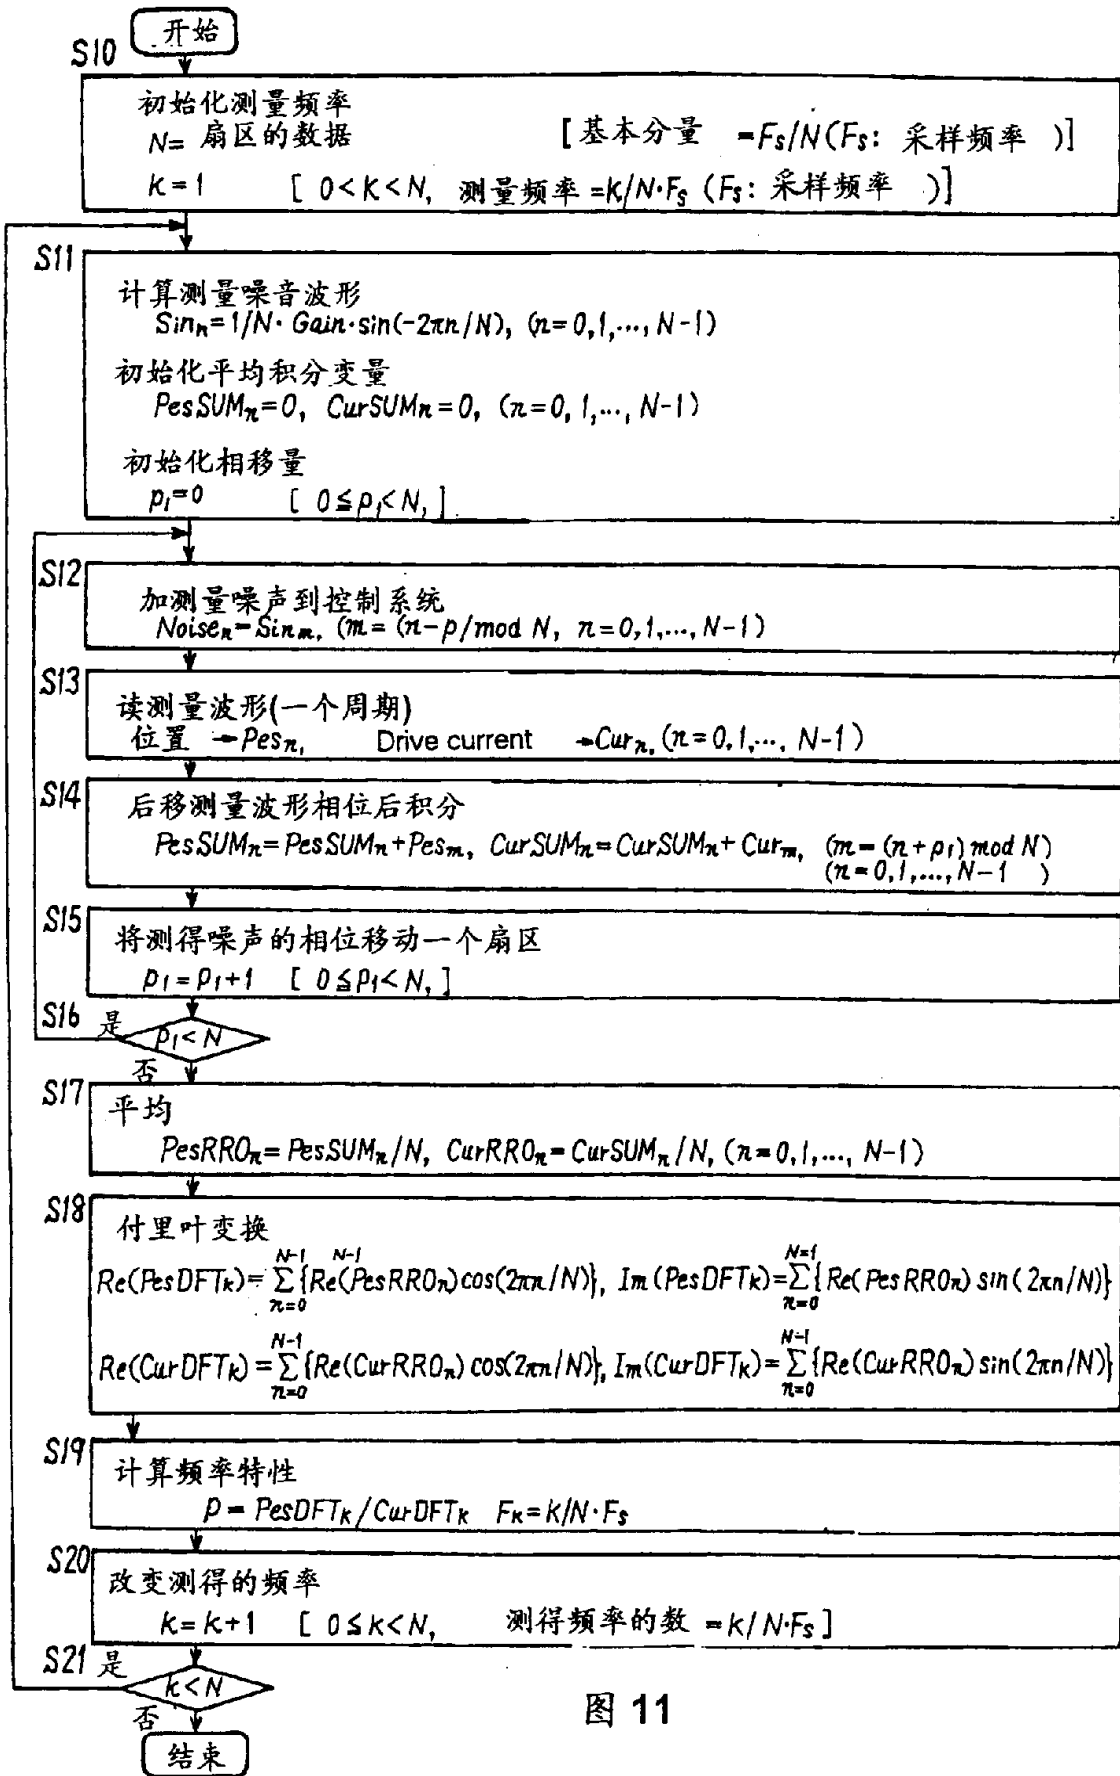 开始
S10
初始化测量频率
N= 扇区的数据 [基本分量 =Fs/N(Fs: 采样频率 )]
k=1 [ 0<K<N, 测量频率=K/N·Fs (Fs: 采样频率 )]
S11
计算测量噪音波形
Sinn=1/N· Gain·sin(-2πn/N), (n=0,1,..., N-1)
初始化平均积分变量
PesSUMn=0, CurSUMn=0, (n=0,1,..., N-1)
初始化相移量
p1=0 [ 0≦p1<N, ]
S12
加测量噪声到控制系统
Noisen=Sinm, (m=(n-p/mod N, n=0,1,..., N-1)
S13
读测量波形(一个周期)
位置 →Pesn, Drive current →Curn, (n=0,1,..., N-1)
S14
后移测量波形相位后积分
PesSUMn=PesSUMn+Pesm, CurSUMn=CurSUMn+Curm, (m=(n+p1) mod N)
(n=0,1,..., N-1 )
S15
将测得噪声的相位移动一个扇区
p1=p1+1 [ 0≦p1<N, ]
S16 是
p1<N
否
S17
平均
PesRROn=PesSUMn/N, CurRROn=CurSUMn/N, (n=0,1,..., N-1)
S18
付里叶变换
N-1 N-1 N=1
Re(PesDFTk)=Σ{Re(PesRROn)cos(2πn/N)}, Im(PesDFTk)=Σ{Re(PesRROn)sin(2πn/N)}
n=0 n=0
N-1 N-1
Re(CurDFTk)=Σ{Re(CurRROn)cos(2πn/N)}, Im(CurDFTk)=Σ{Re(CurRROn)sin(2πn/N)}
n=0 n=0
S19
计算频率特性
P=PesDFTk/CurDFTk Fk=k/N·Fs
S20
改变测得的频率
k=k+1 [ 0≤k<N, 测得频率的数 =k/N·Fs]
S21 是
k<N
否
结束
图 11